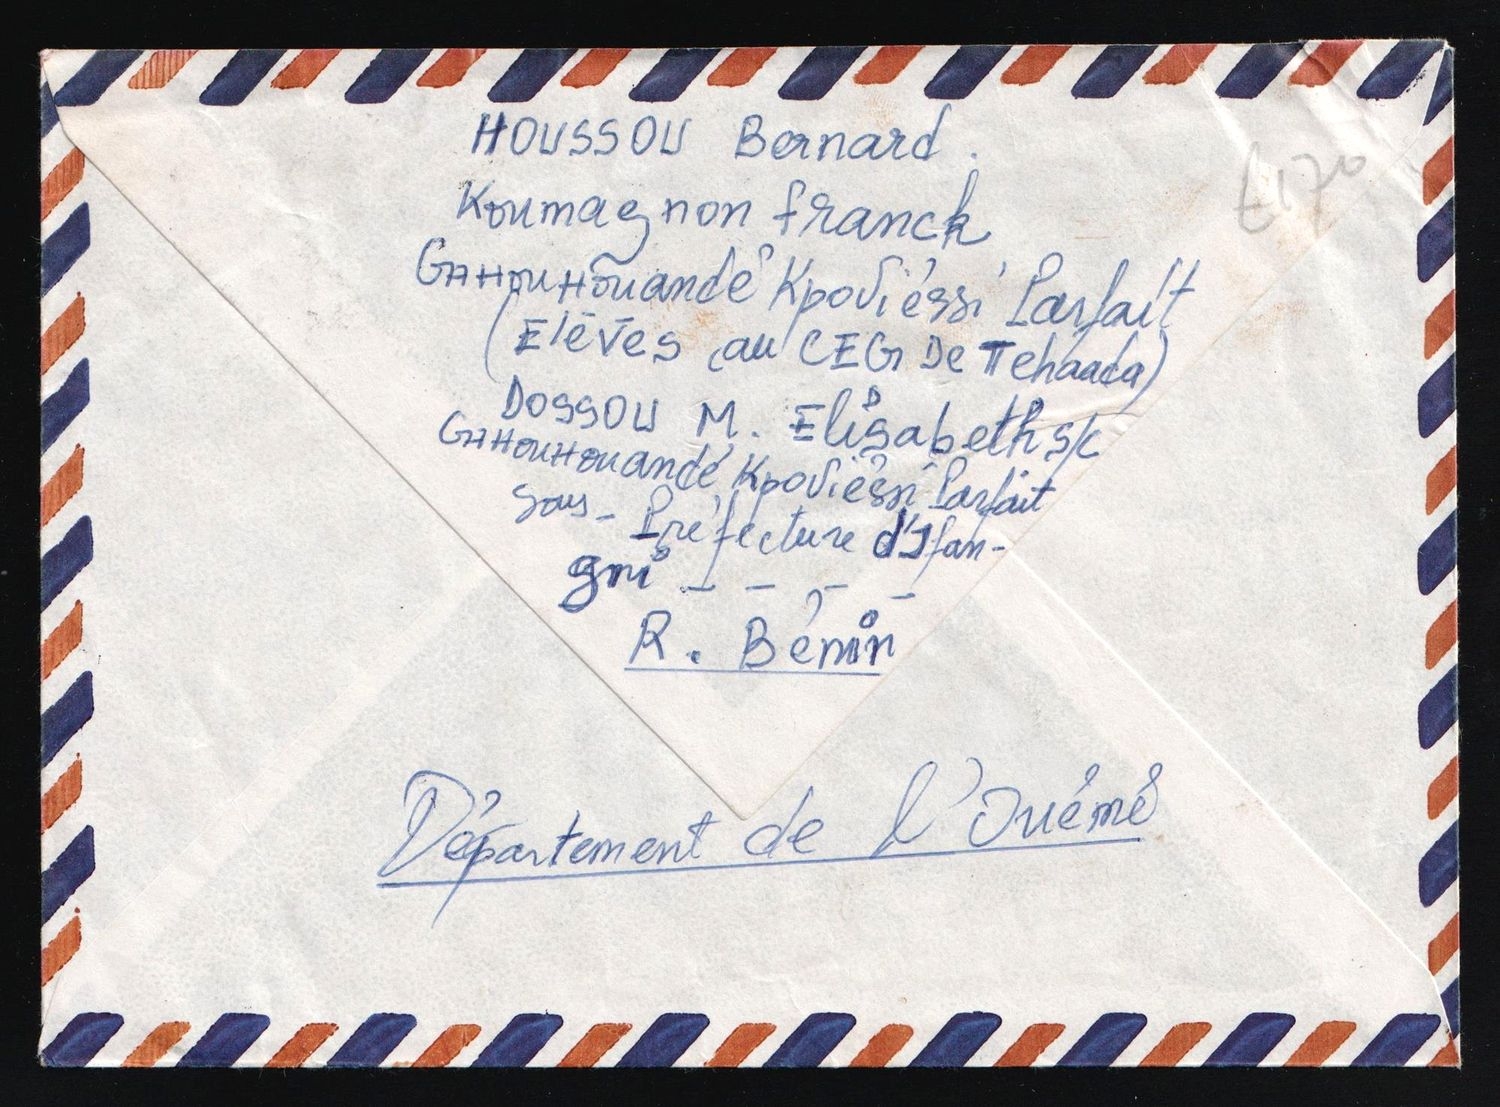 HOUSSOU Bernard.
Koumagnon franck
GAHOUHOUANDé Kpodiéssi Parfait
(Elèves au CEG De Tchaada)
DOSSOU M. D Elisabeth s/c
GAHOUHOUANDé Kpodiéssi Parfait
Sous-Préfecture d'Ifan-
gni - - - -
R. Bénin
Département de l'Ouémé
£170